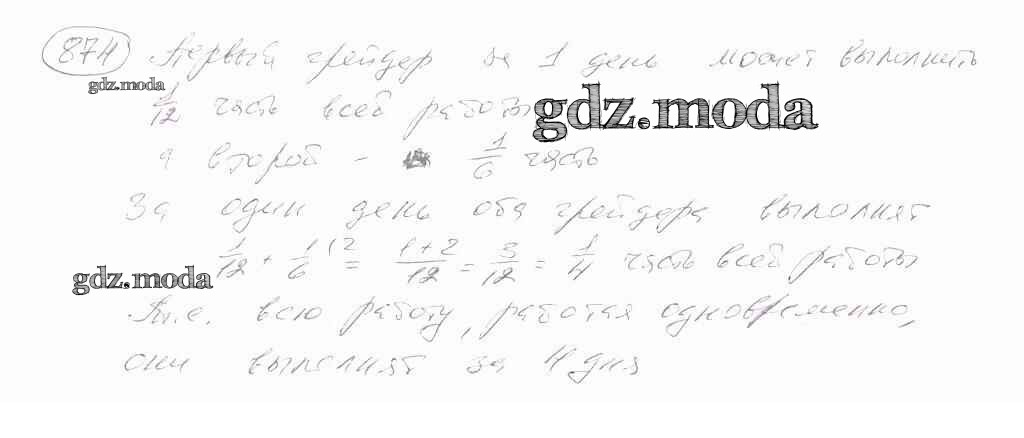 874 Первый грейдер за 1 день может выполнить
gdz.moda
1/12 часть всей работы
gdz.moda
а второй - 1/6 часть
За один день оба грейдера выполнят
1/12 + 1/6 (2 = 1+2/12 = 3/12 = 1/4 часть всей работы
gdz.moda
Т.е. всю работу, работая одновременно,
они выполнят за 4 дня